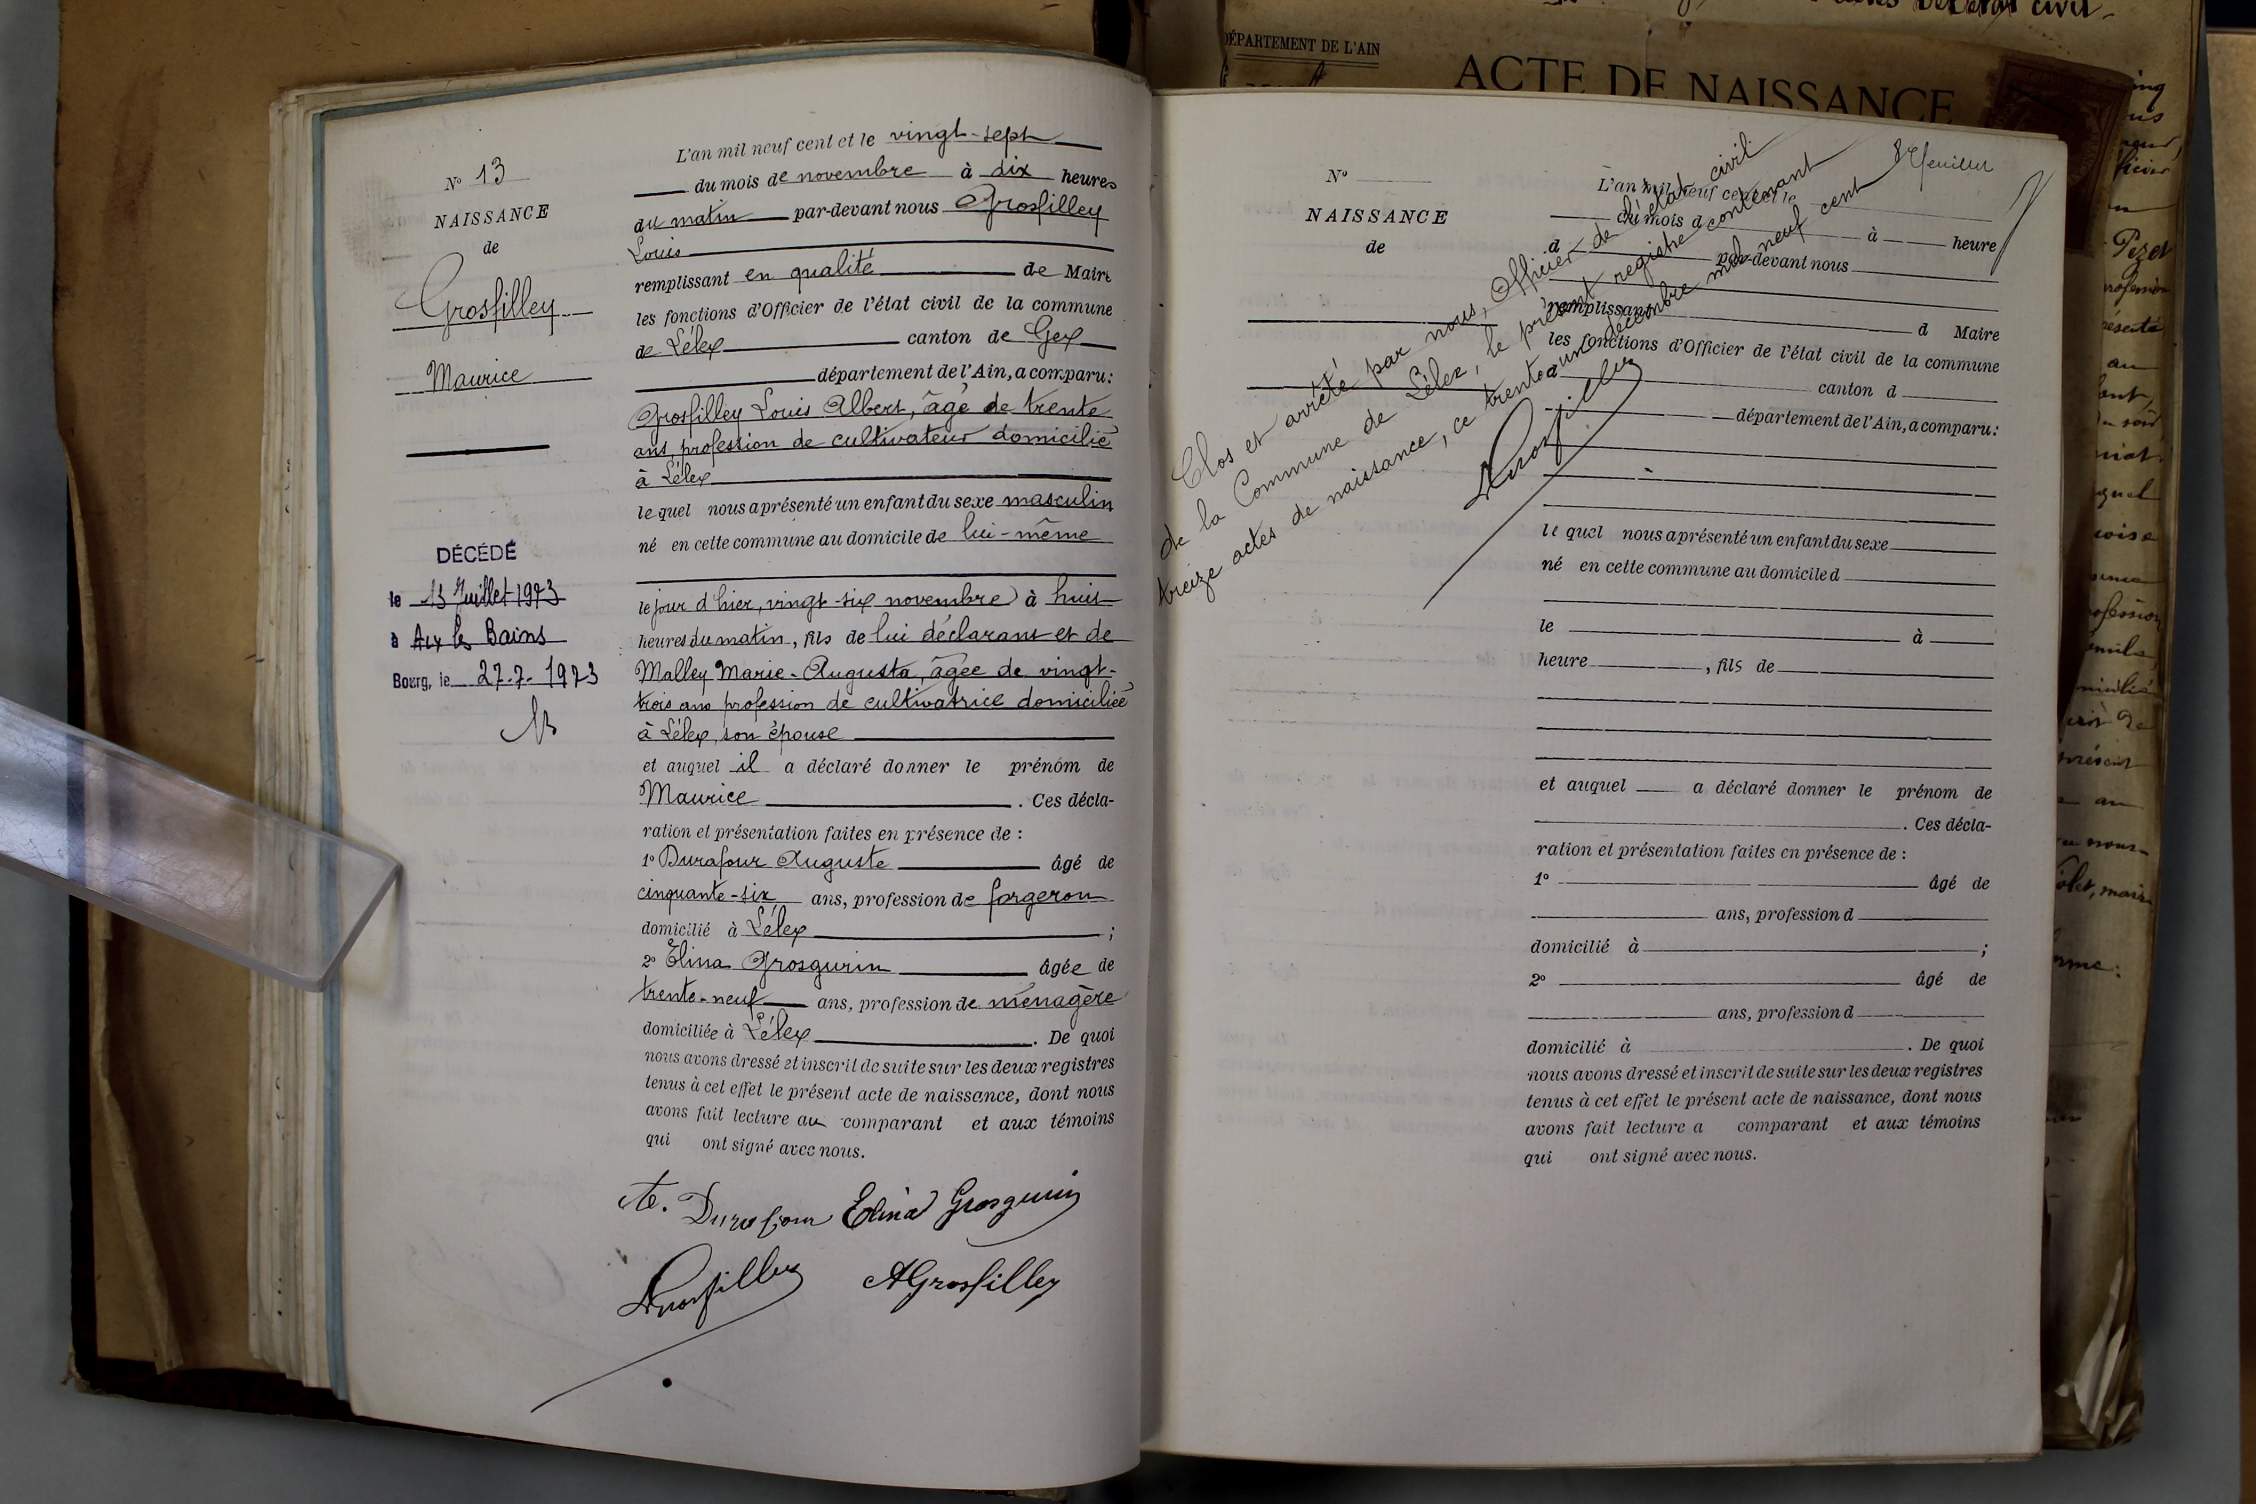 N° 13
NAISSANCE
de
Grosfilley
Maurice
DÉCÉDÉ
le 13 Juillet 1973
à Aix les Bains
Bourg, le 27.7.1973
L'an mil neuf cent et le vingt-sept
du mois de novembre à dix heures
du matin par-devant nous Grosfilley
Louis
remplissant en qualité de Maire
les fonctions d'Officier de l'état civil de la commune
de Lélex canton de Gex
département de l'Ain, a comparu:
Grosfilley Louis Albert, âgé de trente
ans, profession de cultivateur domicilié
à Lélex
lequel nous a présenté un enfant du sexe masculin
né en cette commune au domicile de lui-même
le jour d'hier, vingt-six novembre à huit
heures du matin, fils de lui déclarant et de
Malley Marie-Augusta, âgée de vingt-
trois ans profession de cultivatrice domiciliée
à Lélex, son épouse
et auquel il a déclaré donner le prénom de
Maurice. Ces décla-
ration et présentation faites en présence de :
1° Durafour Auguste âgé de
cinquante-six ans, profession de forgeron
domicilié à Lélex ;
2° Élina Grosgurin âgée de
trente-neuf ans, profession de ménagère
domiciliée à Lélex. De quoi
nous avons dressé et inscrit de suite sur les deux registres
tenus à cet effet le présent acte de naissance, dont nous
avons fait lecture au comparant et aux témoins
qui ont signé avec nous.
Durafour Elina Grosgurin
Grosfilley AGrosfilley
DÉPARTEMENT DE L'AIN
ACTE DE NAISSANCE
N°
NAISSANCE
de
Clos et arrêté par nous, Officier de l'état civil
de la Commune de Lélex, le présent registre contenant
treize actes de naissance, ce trente un décembre mil neuf cent
Grosfilley
L'an mil neuf cent et le
du mois d à heure
d par-devant nous
remplissant d Maire
les fonctions d'Officier de l'état civil de la commune
d canton d
département de l'Ain, a comparu:
lequel nous a présenté un enfant du sexe
né en cette commune au domicile d
le à
heure , fils de
et auquel a déclaré donner le prénom de
. Ces décla-
ration et présentation faites en présence de :
1° âgé de
ans, profession d
domicilié à ;
2° âgé de
ans, profession d
domicilié à . De quoi
nous avons dressé et inscrit de suite sur les deux registres
tenus à cet effet le présent acte de naissance, dont nous
avons fait lecture a comparant et aux témoins
qui ont signé avec nous.